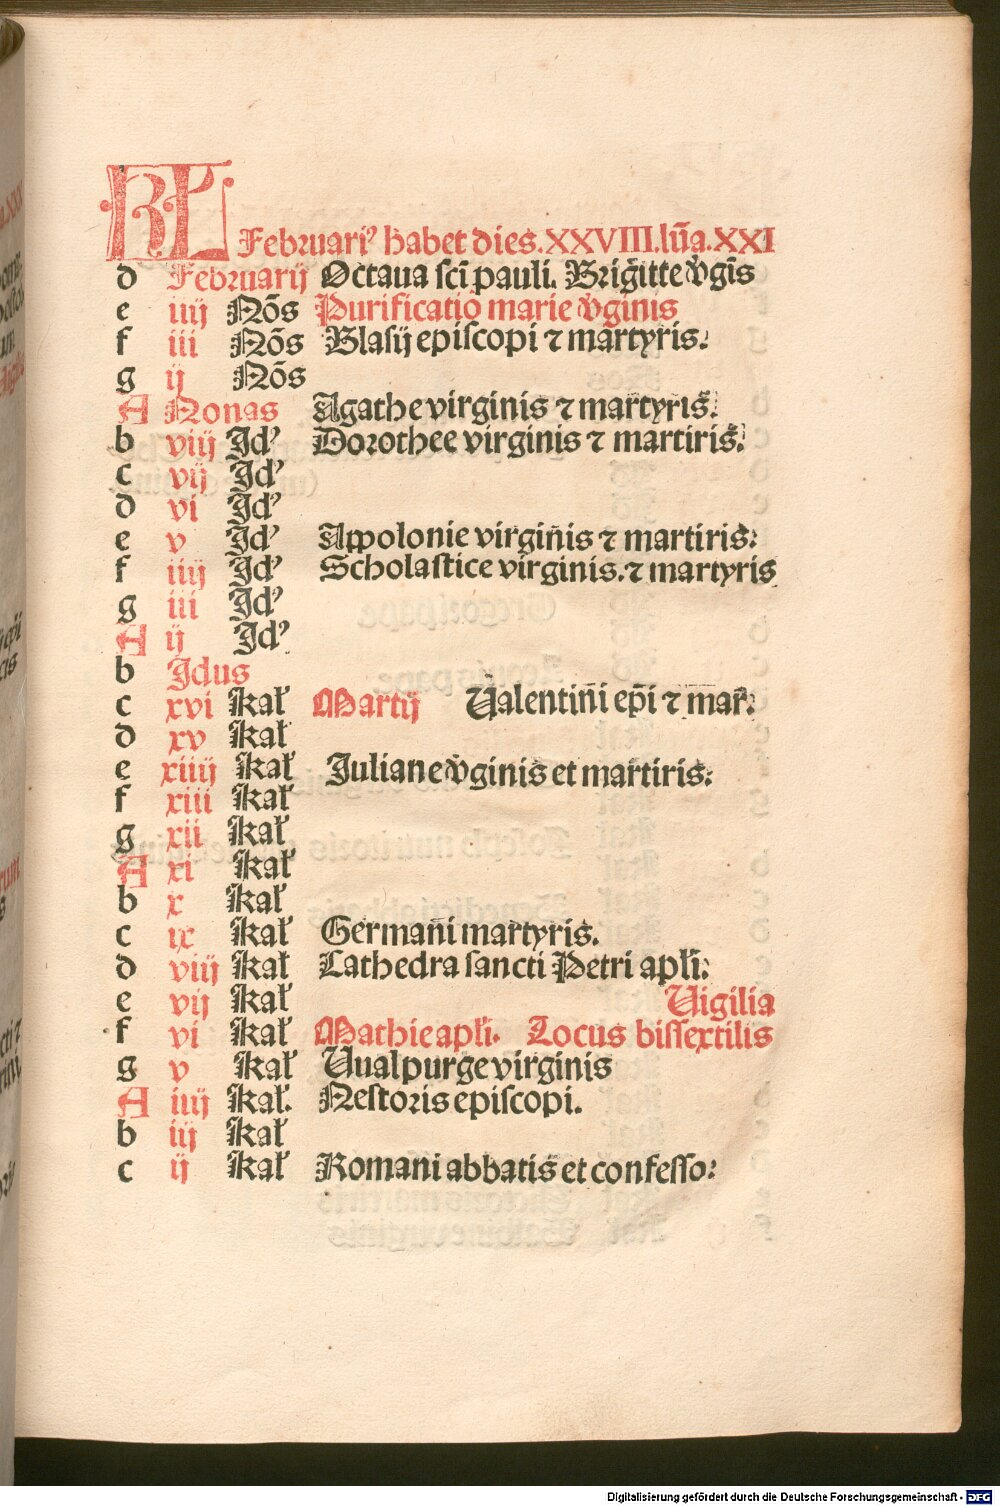 KL
Februari⁹ habet dies.XXVIII.lūa.XXI
d Februarij Octaua sct̄i pauli. Brigitte v̾gīs
e iiij Nōs Purificatiō marie v̾ginis
f iii Nōs Blasij episcopi ⁊ martyris.
g ij Nōs
A Nonas Agathe virginis ⁊ martyris.
b viij Id⁹ Dorothee virginis ⁊ martiris.
c vij Id⁹
d vi Id⁹
e v Id⁹ Appolonie virginis ⁊ martiris.
f iiij Id⁹ Scholastice virginis.⁊ martyris
g iii Id⁹
A ij Id⁹
b Idus
c xvi kal̓ Martij Valentini ep̄i ⁊ mar̄.
d xv kal̓
e xiiij kal̓ Juliane v̾ginis et martiris.
f xiii kal̓
g xii kal̓
A xi kal̓
b x kal̓
c ix kal̓ Germani martyris.
d viij kal̓ Cathedra sancti Petri apl̄i.
e vij kal̓ Vigilia
f vi kal̓ Mathie apl̄i. Locus bissextilis
g v kal̓ Vualpurge virginis
A iiij kal̓. Nestoris episcopi.
b iij kal̓
c ij kal̓ Romani abbatis et confesso⁊
Digitalisierung gefördert durch die Deutsche Forschungsgemeinschaft - DFG